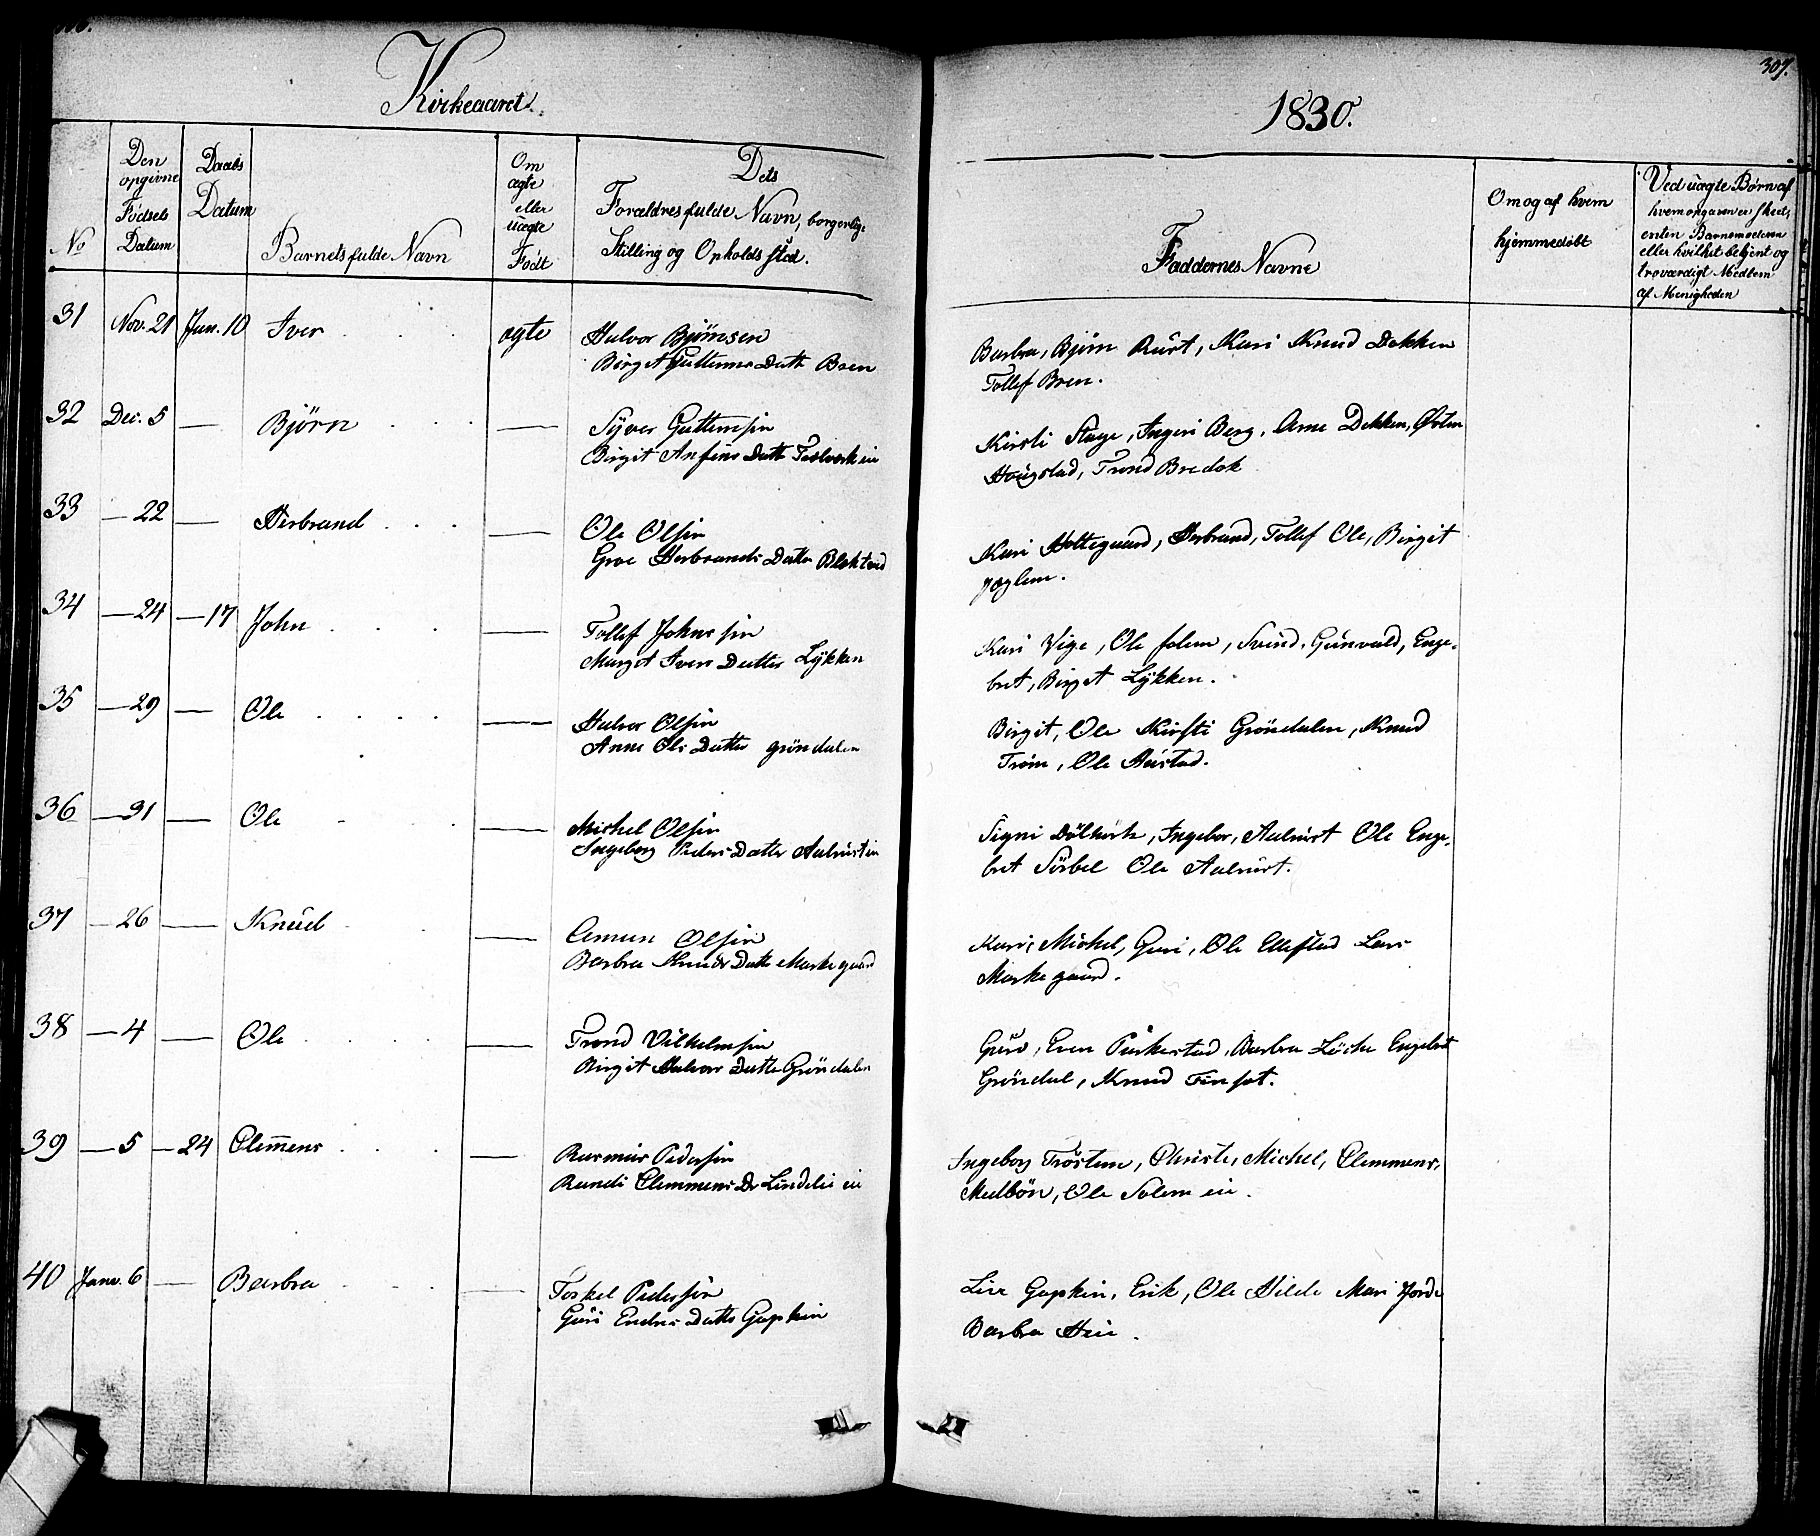 Kirkeaaret 1830.
307.
No
Den opgivne Fødsels Datum
Daabs Datum
Barnets fulde Navn
Om ægte eller uægte Født
Dets Forældres fulde Navn, borgerlige Stilling og Opholds stæd.
Faddernes Navne
Om og af hvem hjemmedøbt
Ved uægte Børn af hvem opgaven er skeet, enten Barnemoderen eller hvilket bekjent og troværdigt Medlem af Menigheden
31 Nov. 21 Jan. 10 Iver ægte Halvor Bjørnsen
Birget Guttorms Datte Bren
Barbra, Bjørn Rust, Kari Knud Dokken
Tollef Bren.
32 Dec. 5 — Bjørn — Syver Guttemsin
Birgit Anfins Datte
Kirsti Stage, Ingeri Berg, Arne Dokken, Østen
Hougstad, Trond Bredok
33 — 22 — Herbrand — Ole Olsin
Groe Herbrands Datte
Kari Holtegaard, Herbrand, Tollef Ole, Birgit
34 — 24 — 17 John — Tollef Johnssin
Margot Ivers Datter Lykken
Kari Vige, Ole Solem, Svend, Gunvald, Enge-
bret, Birget Lykken.
35 — 29 — Ole — Halvor Olsin
Anne Ols Datter Grøndalen
Birgit, Ole Kirsti Grøndalen, Knud
Trøim, Ole Austad.
36 — 31 — Ole — Michel Olsin
Ingeborg Peders Datte Aalrust in
Signi Ingebor, Aalrust Ole Enge-
bret Sørbel Ole Aalrust.
37 — 26 — Knud — Amun Olsin
Barbra Knuds Datte Markegaard
Kari, Michel, Guri, Ole Ellefstad Lars
Markegaard.
38 — 4 — Ole — Trond Vilhelmsin
Birgit Halvor Datte Grøndalen
Guro, Even Barbra Engebret
Grøndal, Knud Finset.
39 — 5 — 24 Clemens — Rasmus Pedersin
Randi Clemmens Dr Lindelie ei
Ingeborg Trøstem, Christi, Michel, Clemmens,
Medbøn, Ole Solem ei.
40 Janv. 6 — Barbra — Torkel Pedersin
Guri Endres Datte Gupkin
Live Gupkin, Erik, Ole Hilde Mari Jorde
Barbra Hiei.